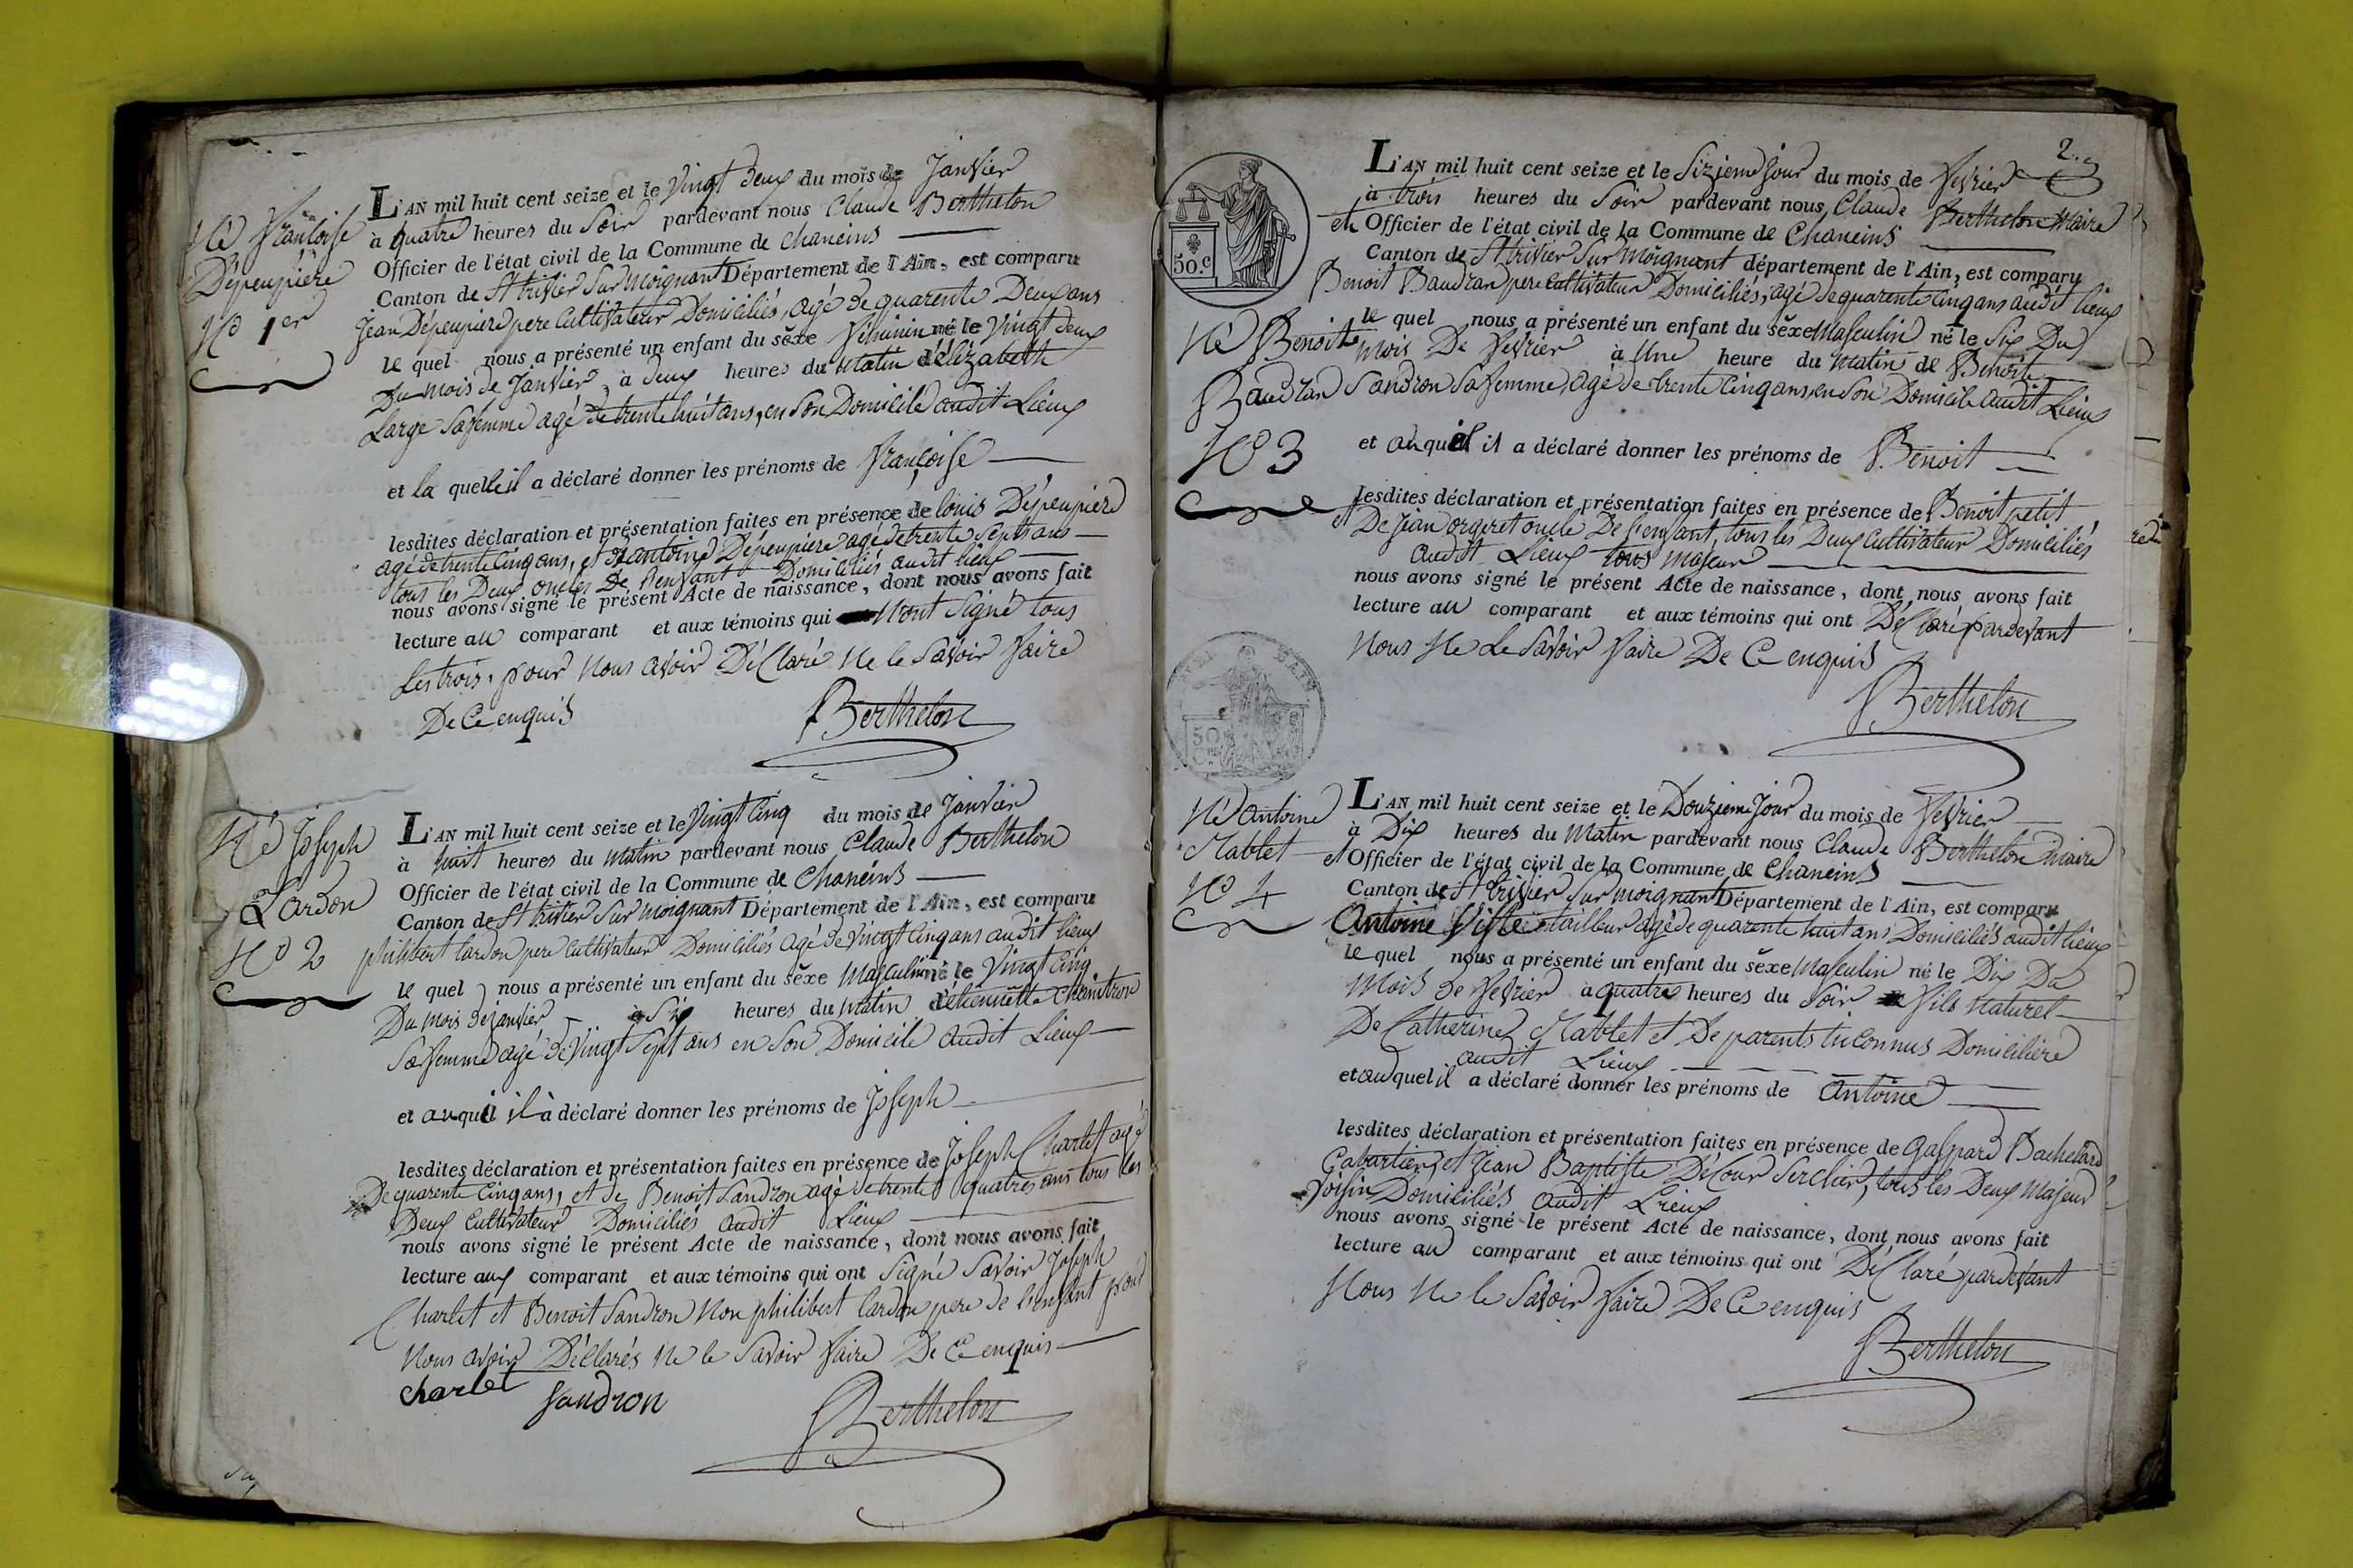 Né françoise
Dépeupière
No 1er
L'AN mil huit cent seize et le Vingt deux du mois de Janvier
à quatre heures du Soir pardevant nous Claude Berthelon
Officier de l'état civil de la Commune de Chaneins
Canton de St trivier Sur Moignant Département de l'Ain, est comparu
Jean Dépeupiere pere Cultivateur Domiciliés, agé de quarente Deux ans
le quel nous a présenté un enfant du sexe féminin né le Vingt deux
Du mois de Janvier à deux heures du Matin d'élizabeth
Large Sa femme agé de trente huit ans, en Son Domicile audit Lieux
et la quelle il a déclaré donner les prénoms de françoise
lesdites déclaration et présentation faites en présence de louis Dépeupiere
agé de trente Cinq ans, et d'antoine Dépeupiere agé de trente Sept ans
tous les Deux oncles De l'enfant Domiciliés audit lieux
nous avons signé le présent Acte de naissance, dont nous avons fait
lecture au comparant et aux témoins qui Nont Signé tous
Les trois, pour Nous avoir Déclaré Ne le Savoir faire
De Ce enquis
Berthelon
Né Joseph
Lardon
No 2
L'AN mil huit cent seize et le Vingt Cinq du mois de Janvier
à huit heures du Matin pardevant nous Claude Berthelon
Officier de l'état civil de la Commune de Chaneins
Canton de St trivier Sur moignant Département de l'Ain, est comparu
philibert lardon pere Cultivateur Domiciliés agé de Vingt Cinq ans audit lieux
le quel nous a présenté un enfant du sexe Masculin né le Vingt Cinq
Du mois de janvier à Six heures du Matin d'étiennette
Sa femme agé de Vingt Sept ans en Son Domicile audit Lieux
et auquel il à déclaré donner les prénoms de Joseph
lesdites déclaration et présentation faites en présence de Joseph Charlet agé
De quarente Cinq ans, et de Benoit Sandron agé de trente quatres ans tous les
Deux Cultivateur Domiciliés audit Lieux
nous avons signé le présent Acte de naissance, dont nous avons fait
lecture aux comparant et aux témoins qui ont Signé Savoir Joseph
Charlet et Benoit Sandron Non philibert lardon pere de l'enfant pour
Nous avoir Déclarés Ne le Savoir faire De Ce enquis
charlet
sandron
Berthelon
2.
50.c
L'AN mil huit cent seize et le Sizieme Jour du mois de fevrier
à trois heures du Soir pardevant nous Claude Berthelon Maire
et Officier de l'état civil de la Commune de Chaneins
Canton de St trivier Sur Moignant département de l'Ain, est comparu
Benoit Baudran pere Cultivateur Domiciliés, agé de quarente Cinq ans audit lieux
Né Benoit
Baudran
No 3
le quel nous a présenté un enfant du sexe Masculin né le Six Du
Mois De fevrier à Une heure du Matin de Benoite
Sandron Sa femme, agé de trente Cinq ans, en Son Domicile audit Lieux
et auquel il a déclaré donner les prénoms de Benoit
lesdites déclaration et présentation faites en présence de Benoit petit
et De Jean orgeret oncle De l'enfant, tous les Deux Cultivateur Domiciliés
audit Lieux tous majeur
nous avons signé le présent Acte de naissance, dont nous avons fait
lecture au comparant et aux témoins qui ont Déclaré pardevant
Nous Ne Le Savoir faire De Ce enquis
Berthelon
50
Né antoine
Mablet
No 4
L'AN mil huit cent seize et le Douzieme Jour du mois de fevrier
à Dix heures du Matin pardevant nous Claude Berthelon Maire
et Officier de l'état civil de la Commune de Chaneins
Canton de St trivier Sur moignant Département de l'Ain, est comparu
Antoine tailleur agé de quarente huit ans Domiciliés audit lieux
le quel nous a présenté un enfant du sexe Masculin né le Dix Du
Mois de fevrier à quatre heures du Soir fils Naturel
De Catherine Mablet et De parents inconnus Domiciliére
audit Lieux
et auquel il a déclaré donner les prénoms de Antoine
lesdites déclaration et présentation faites en présence de Gaspard Bachelard
Cabartier, et Jean Baptiste Décour Serclier, tous les Deux Majeur
Voisin Domiciliés audit Lieux
nous avons signé le présent Acte de naissance, dont nous avons fait
lecture au comparant et aux témoins qui ont Déclaré pardevant
Nous Ne le Savoir faire De Ce enquis
Berthelon